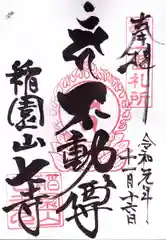 奉拝
札所
令和元年
十一月十六日
不動尊
稲園山
七寺